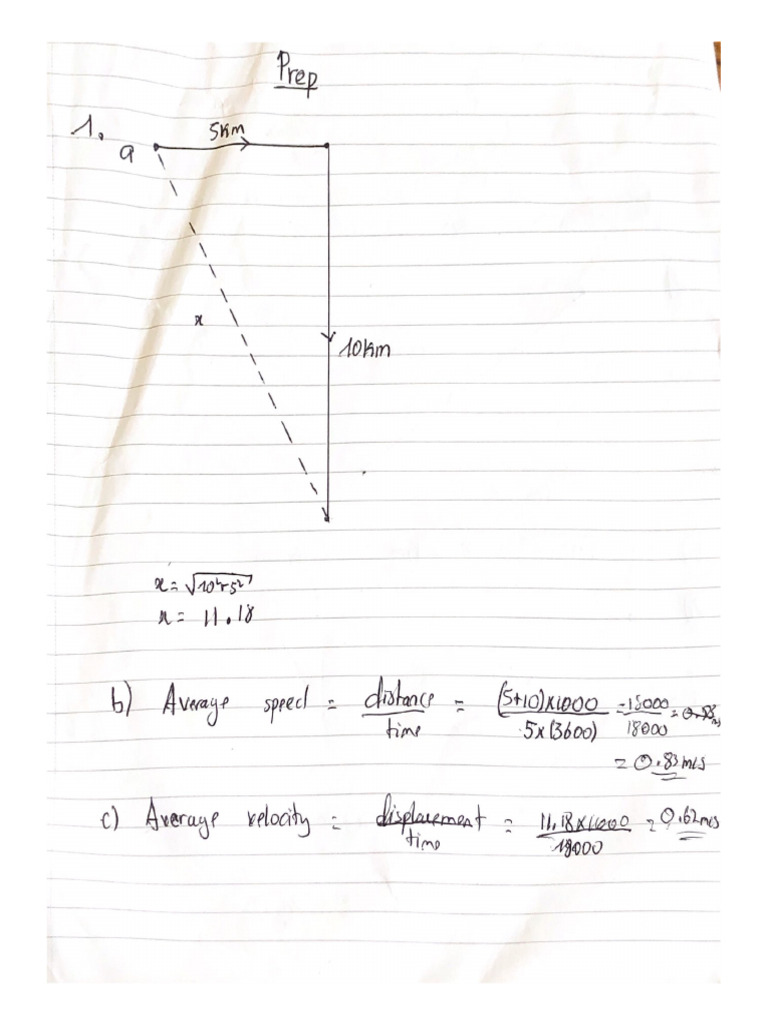 Prep
1.
a
5km
x
10km
x = √10²+5²
x = 11.18
b) Average speed = distance/time = (5+10)x1000/5x(3600) = 15000/18000 =
= 0.83 m/s
c) Average velocity = displacement/time = 11.18x1000/18000 = 0.62 m/s